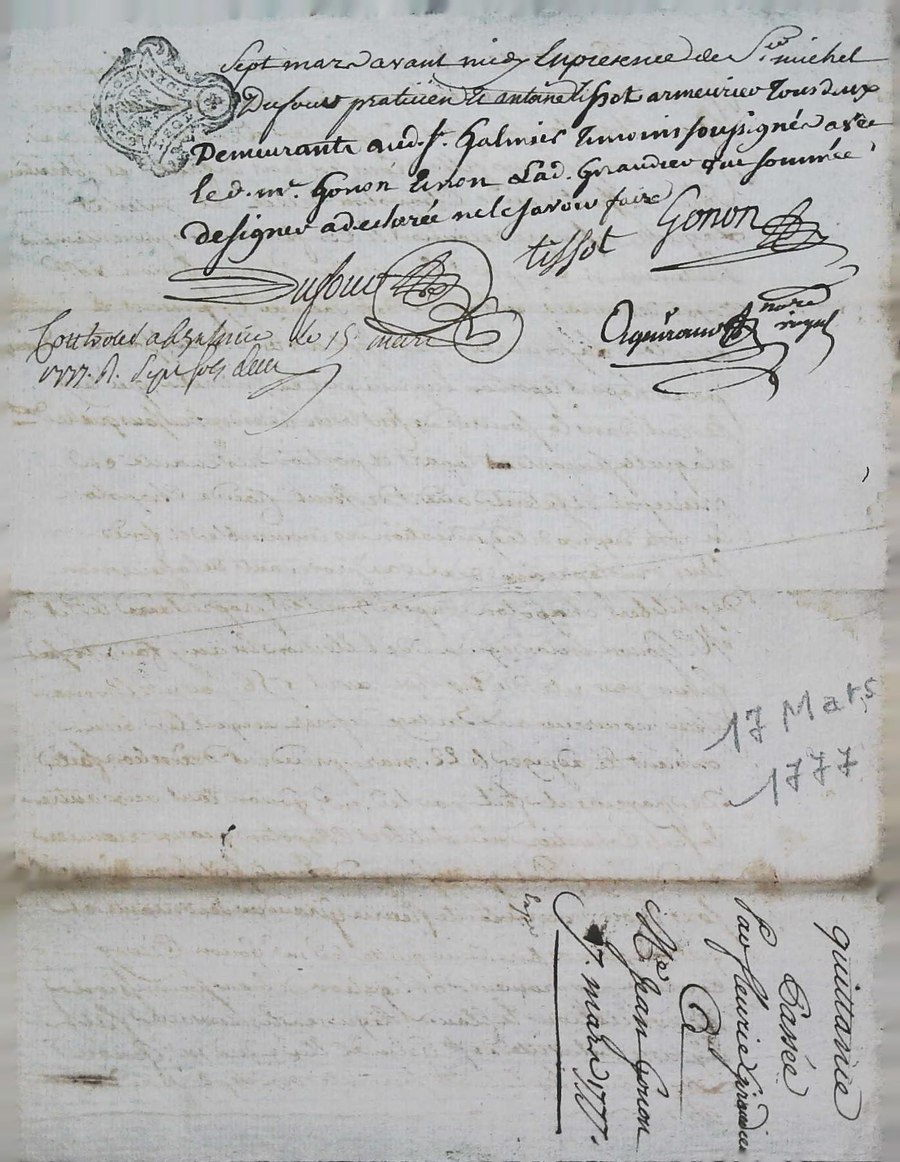 Sept mars avant midy En presence de Sr. michel
Dufour praticien et antoine tissot armeurier tous deux
Demeurants aud. St. Galmier temoins soussignés avec
led. mr. Gonon et non Lad. Giraudier qui sommée
designer a declarée ne le savoir faire
Gonon
tissot
Dufour
nore
royal
Controllé a St galmier le 15 mars
1777. R. Sept sols
17 Mars
1777
quittance
Passée
Par fleurie Giraudier
A
Me Jean Gonon
7. mars 1777.
Exppé